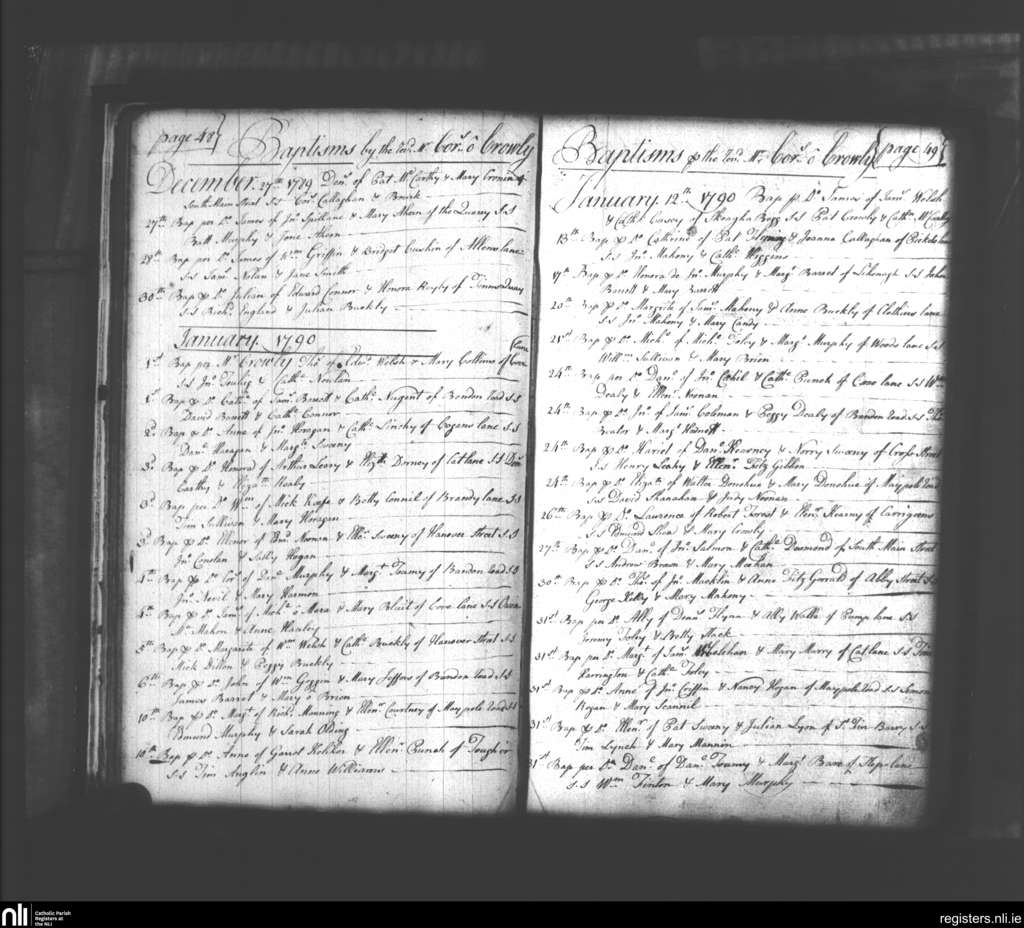 page 48
Baptisms by the Revd. Mr. Cors. ô Crowly
December 27th 1789 Dens. of Pat McCarthy & Mary Cronin of
South Main Street S.S Cors. Callaghan & Brusk
27th Bap per Do James of Jno. Spillane & Mary Ahern of the Quarry S:S
Batt Murphy & Jone Ahern
28th Bap per Do James of Wm Griffin & Bridget Cushin of Allens lane
S:S Saml. Nolan & Jane Smith
30th Bap P Do Julian of Edward Connor & Honora of Timms Quay
S:S Richd. England & Julian Buckly
January 1790
1st Bap per Mr Crowly Thos. of Edmd. Welsh & Mary Collins of Cove
lane
S:S Jno. Touhig & Cathe. Nowlan
1st Bap P Do Cathe. of Saml. Barrett & Cathe. Nugent of Bandon road S:S
David Barrett & Cathe. Connor
2d Bap P Do Anne of Jno. Horagan & Cathe. Linchy of Cogans lane S:S
Danl. Haragan & Margt. Sweeny
3d Bap P Do Honora of Arthur Leary & Elizth. Dorney of Catlane S:S Denl.
Carthy & Elizth. Healy
3d Bap per Do Wm of Mick Keefe & Betty Connil of Brandy lane S:S
Tim Sullivan & Mary Horagan
3d Bap P Do Elenor of Edmd. Noonan & Elle. Sweeny of Hanover Street S:S
Jno. Conolan & Sally Hogan
4th Bap P Do Cors. of Denl. Murphy & Margt. Toumy of Bandon road S:S
Jno. Nevil & Mary Harmon
4th Bap P Do Saml. of Michl. ô Mara & Mary Bluit of Cove lane S:S Owen
Mc Mahon & Anne Hawley
5th Bap P Do Margarite of Wm Welsh & Cathe. Buckly of Hanover Street S:S
Mick Dillon & Peggy Buckly
6th Bap P Do John of Wm Goggin & Mary Jeffers of Bandon road S:S
James Barrat & Mary ô Brien
10th Bap P Do Margt. of Richd. Manning & Ellenr. Courtney of Maypole road S:S
Edmund Murphy & Sarah Olding
10th Bap P Do Anne of Garret Keliher & Ellenr. Bunch of Tough or
S:S Tim Anglin & Anne Williams
page 49
Baptisms P the Revd. Mr. Cors. ô Crowly
January 12th 1790 Bap P Do James of Jams. Welsh
& Cathe. Casey of Skeagha Begg S:S Pat Crowly & Cathe. McCarthy
13th Bap P Do Catherine of Pat Fleming & Joanna Callaghan of Cockits lane
S:S Jno. Mahony & Cathe. Wiggins
17th Bap P Do Honora de Jno. Murphy & Margt. Barret of Lehenagh S:S John
Barrett & Mary Barrett
20th Bap P Do Margrite of Jams. Mahony & Anne Buckly of Clothins lane
S:S Jno. Mahony & Mary Candy
21st Bap P Do Michl. of Michl. Daley & Margt. Murphy of Woods lane S:S
Willm. Sullivan & Mary Brien
24th Bap per Do Danl. of Jno. Cahil & Cathe. Bunch of Cove lane S:S Wm
Dealy & Ellenr. Noonan
24th Bap P Do Jno. of Jams. Colman & Peggy Dealy of Bandon road S:S
Water & Margt. Hodnett
24th Bap P Do Hariot of Danl. Kearney & Norry Sweeny of Cross Street
S:S Henry Leahy & Ellenr. Fitz Gibbon
24th Bap P Do Elizth. of Walter Donohue & Mary Donohue of Maypole road
S:S David Shanahan & Judy Noonan
26th Bap P Do Laurence of Robert Forrest & Ellenr. Kearny of Carrigeens
S:S Edmund Shea & Mary Crowly
27th Bap P Do Danl. of Jno. Salmon & Cathe. Desmond of South Main Street
S:S Andrew Brown & Mary Meehan
30th Bap P Do Thos. of Jno. Macklin & Anne Fitz Gerrald of Abby Street S:S
George Kelly & Mary Mahony
31st Bap per Do Ally of Denl. Flynn & Ally Walls of Pump lane S:S
Tommy Foley & Betty Stack
31st Bap per Do Margt. of Jams. Whelehan & Mary Murry of Catlane S:S Tim
Harrington & Cathe. Foley
31st Bap P Do Anne of Jno. Griffin & Nancy Hogan of Maypole road S:S Simon
Hogan & Mary Scannil
31st Bap P Do Ellenr. of Pat Sweeny & Julian Lyon of St. Fin Barry S:S
Tim Lynch & Mary Mannin
31st Bap per Do Danl. of Danl. Toumy & Margt. Bare of Step lane
S:S Wm Finton & Mary Murphy
nli
Catholic Parish
Registers at
the NLI
registers.nli.ie